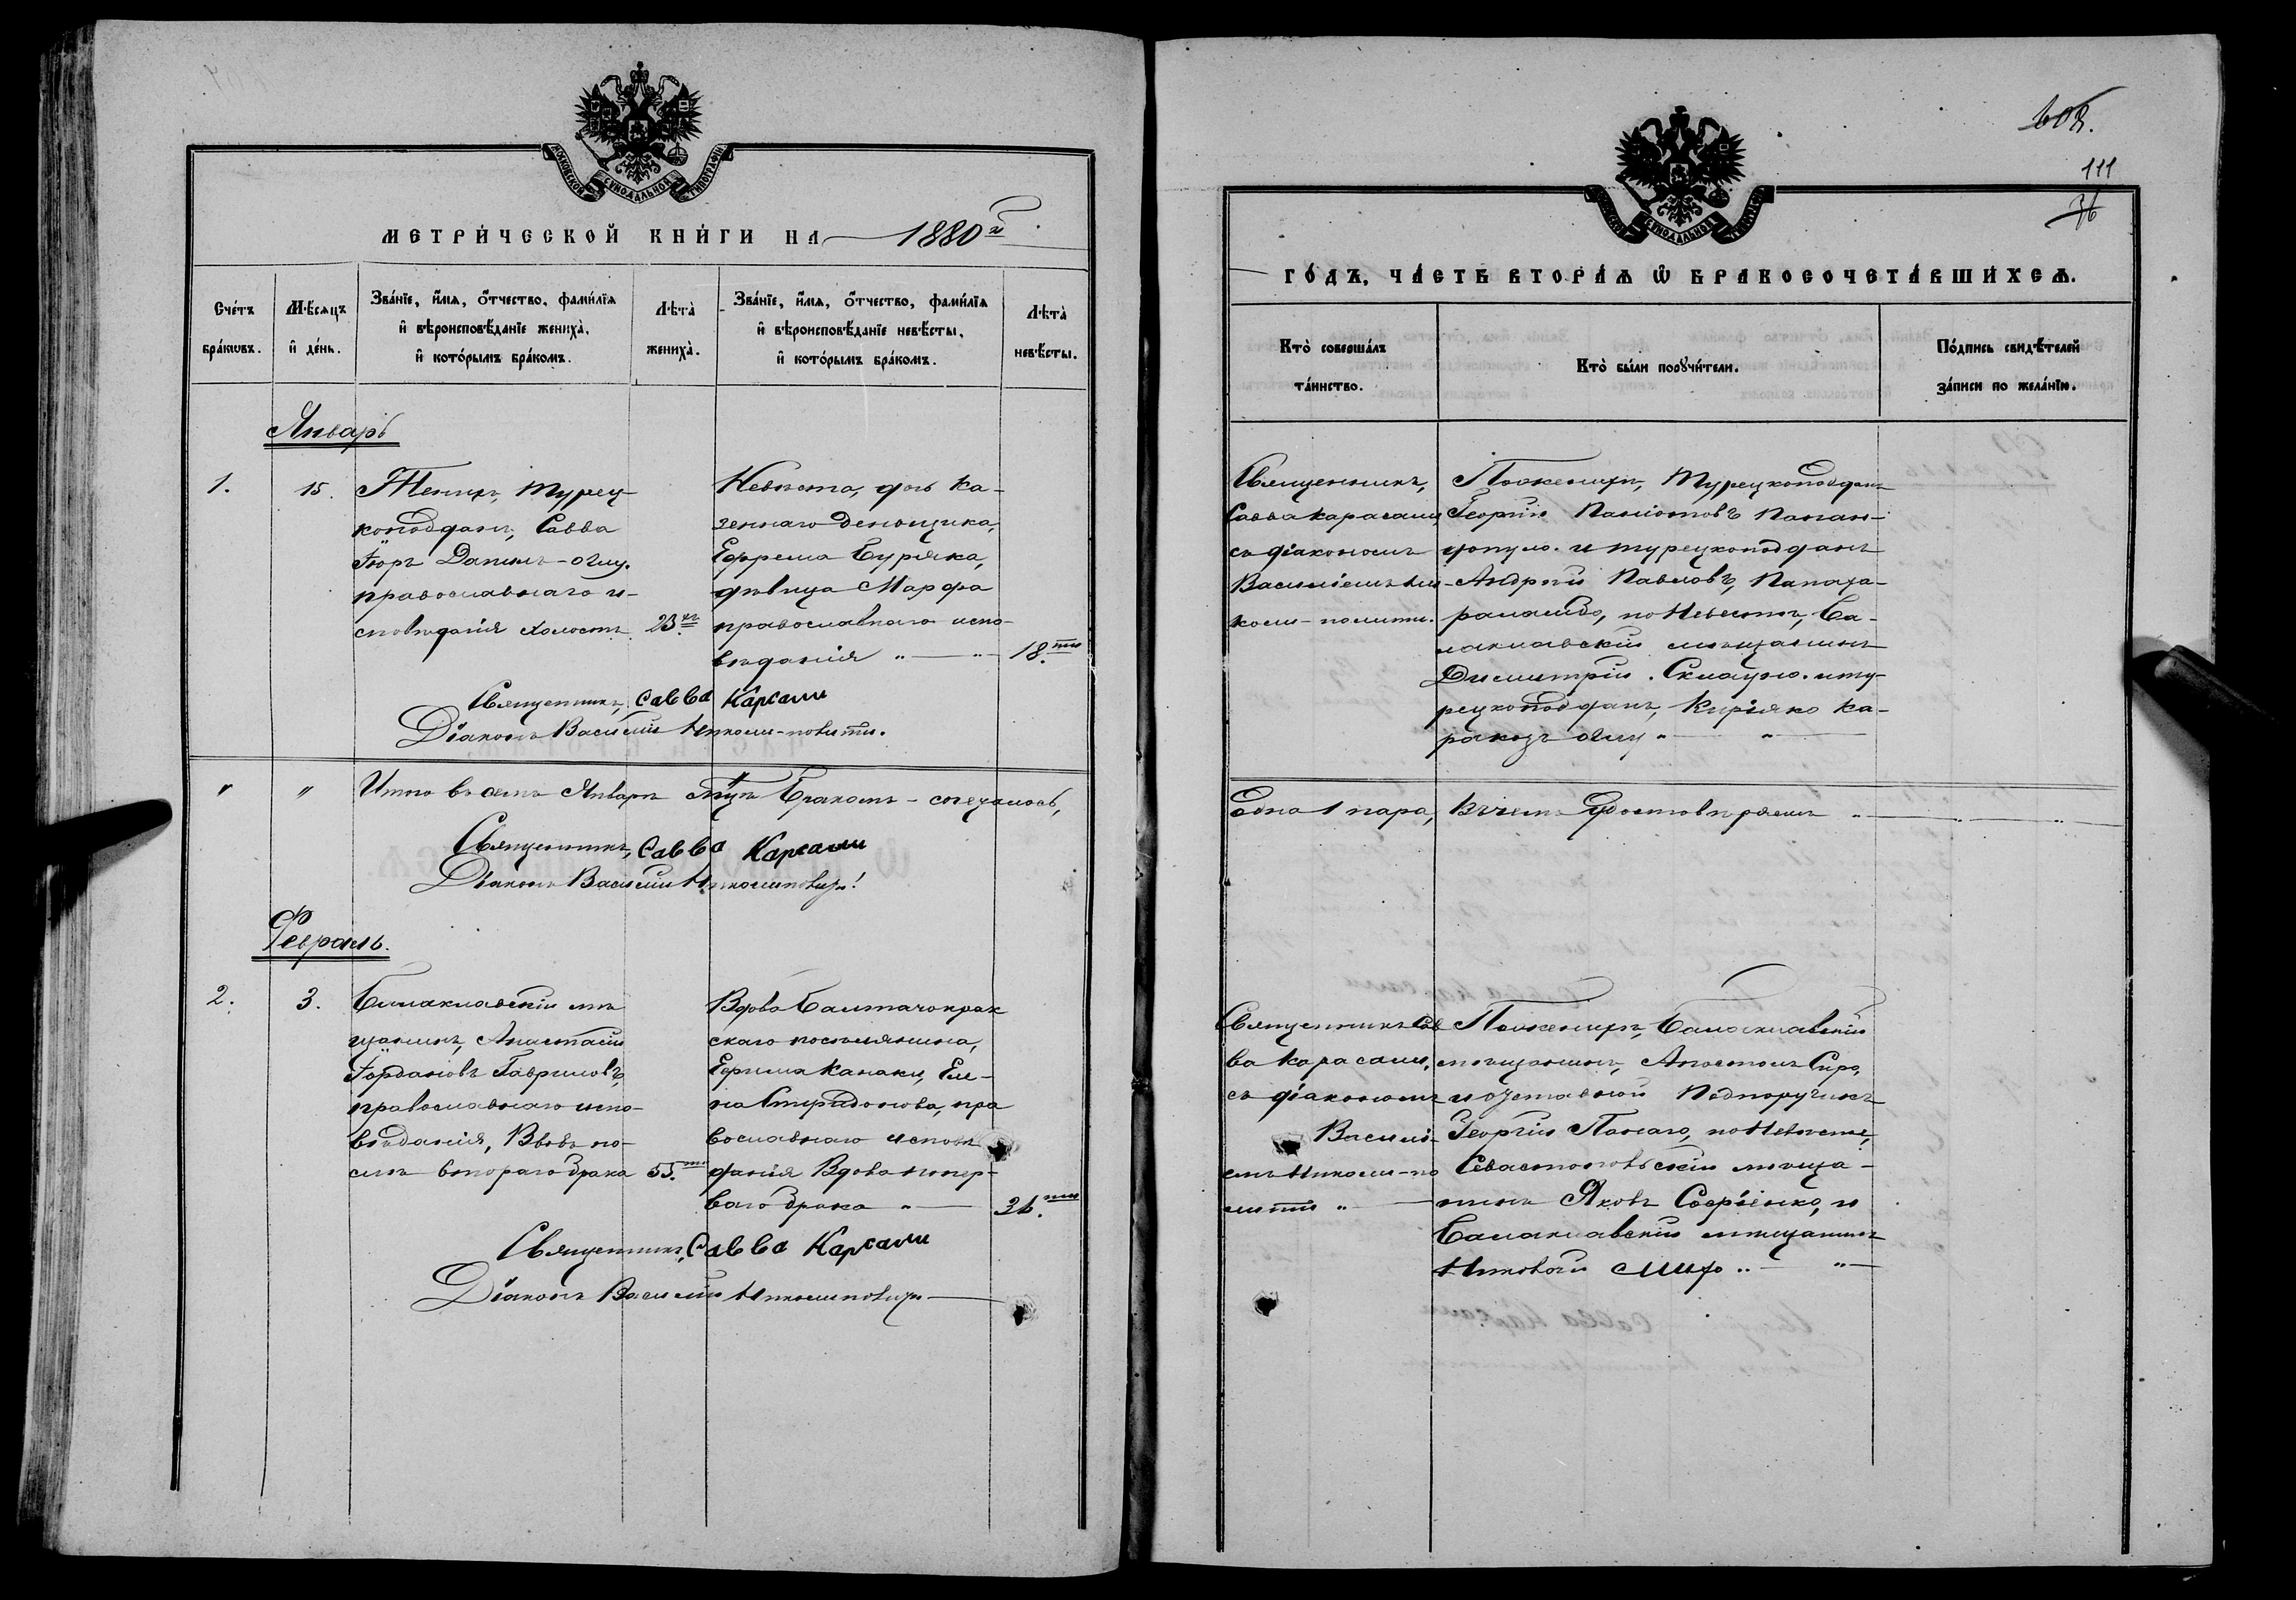 МОСКОВСКОЙ СѴНОДАЛЬНОЙ ТИПОГРАФІИ
МЕТРИ́ЧЕСКОЙ КНИ́ГИ НА 1880й
Сче́тъ бра́кωвъ.
Мѣ́сяцъ и҆ де́нь.
Зва́нїе, и҆́мѧ, ѻ҆́тчество, фами́лїѧ
и҆ вѣроисповѣ́данїе жениха̀,
и҆ кото́рымъ бра́комъ.
Лѣ́та жениха̀.
Зва́нїе, и҆́мѧ, ѻ҆́тчество, фами́лїѧ
и҆ вѣроисповѣ́данїе невѣ́сты,
и҆ кото́рымъ бра́комъ.
Лѣ́та невѣ́сты.
Январь
1.
15.
Женихъ, турец-
коподдан, Савва
Іюръ Данилъ-оглу.
православнаго и-
сповѣданія холостъ
23.
Невѣста, дочь ка-
зеннаго деньщика,
Ефрема Буряка,
дѣвица Марфа
православнаго испо-
вѣданія " — "
18.ти
Священникъ, Савва Карсали
Діаконъ Василій
" " Итого въ семъ Январѣ м҃цѣ бракомъ - сочеталось,
Священникъ, Савва Карсали
Діаконъ Василій
Февраль.
2.
3.
Балаклавскій мѣ
щанинъ, Анастасій
Іордановъ Гавриловъ,
православнаго испо-
вѣданія, Вдовъ по-
слѣ втораго брака
55.ти
Вдова Балтачокрак
скаго поселянина,
Ефима Канаки, Еле-
на Спиридонова, пра
вославнаго исповѣ
данія Вдова попер-
ваго брака " —
Священникъ, Савва Карсали
Діаконъ Василій
111
МОСКОВСКОЙ СѴНОДАЛЬНОЙ ТИПОГРАФІИ
ГО́ДЪ, ЧА́СТЬ ВТОРА́Ѧ Ѽ БРАКОСОЧЕТА́ВШИХСѦ.
Кто̀ соверша́лъ та́инство.
Кто̀ бы́ли порꙋчи́тели.
По́дпись свидѣ́телей за́писи по жела́нїю.
Священникъ,
Савва Карасали
съ діакономъ
Василіемъ Ни-
Поженихѣ, Турецкоподдан
Георгій
и турецкоподданъ
Андрей Павловъ,
по Невѣстѣ, Ба-
лаклавскій мѣщанинъ
Димитрій и ту-
рецкоподдан, Киріяко Ка-
ракозъ оглу " — "
Одна 1 пара, Въ чемъ Удостовѣряемъ " — " — "
Священникъ Сав
ва Карасали,
съ діакономъ
Василі-
емъ
Поженихѣ, Балаклавскій
мѣщанинъ, Апостолъ Спиро,
и отставной Подпоручикъ
Георгій по Невѣстѣ,
Севастопольскій мѣща-
нинъ Яковъ Софіенко, и
Балаклавскій мѣщанинъ
Николай " — "